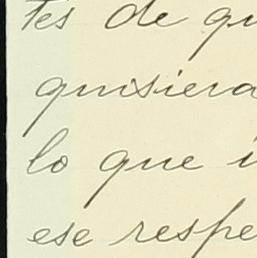 tes de qu
quisiera
lo que i
ese respe